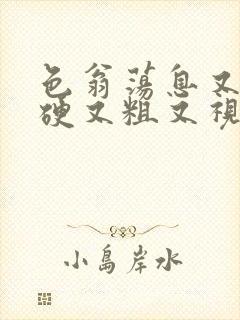 色翁荡息又
硬又粗又视
小島岸水